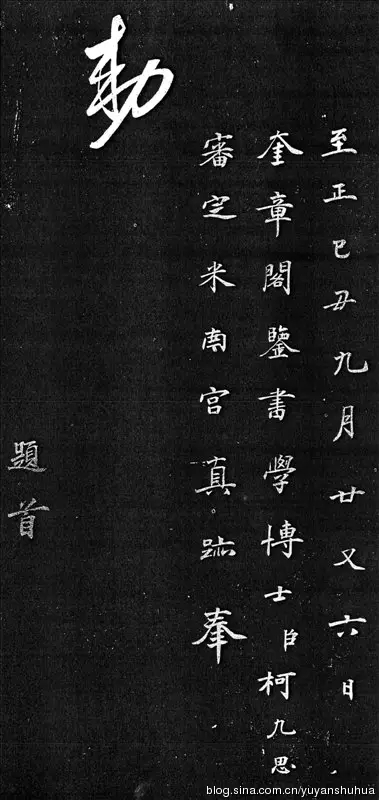 至正已丑九月廿又六日
奎章閣鑒書學博士臣柯九思
審定米南宮真跡奉
勅
題首
blog.sina.com.cn/yuyanshuhua